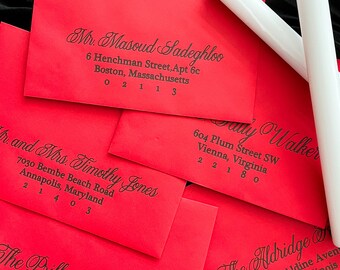 Mr. Masoud Sadeghloo
6 Henchman Street,Apt 6c
Boston, Massachusetts
0 2 1 1 3
Walker
604 Plum Street SW
Vienna, Virginia
2 2 1 8 0
and Mrs. Timothy Jones
7030 Bembe Beach Road
Annapolis, Maryland
2 1 4 0 3
The Aldridge
Avenue
Illinois
The